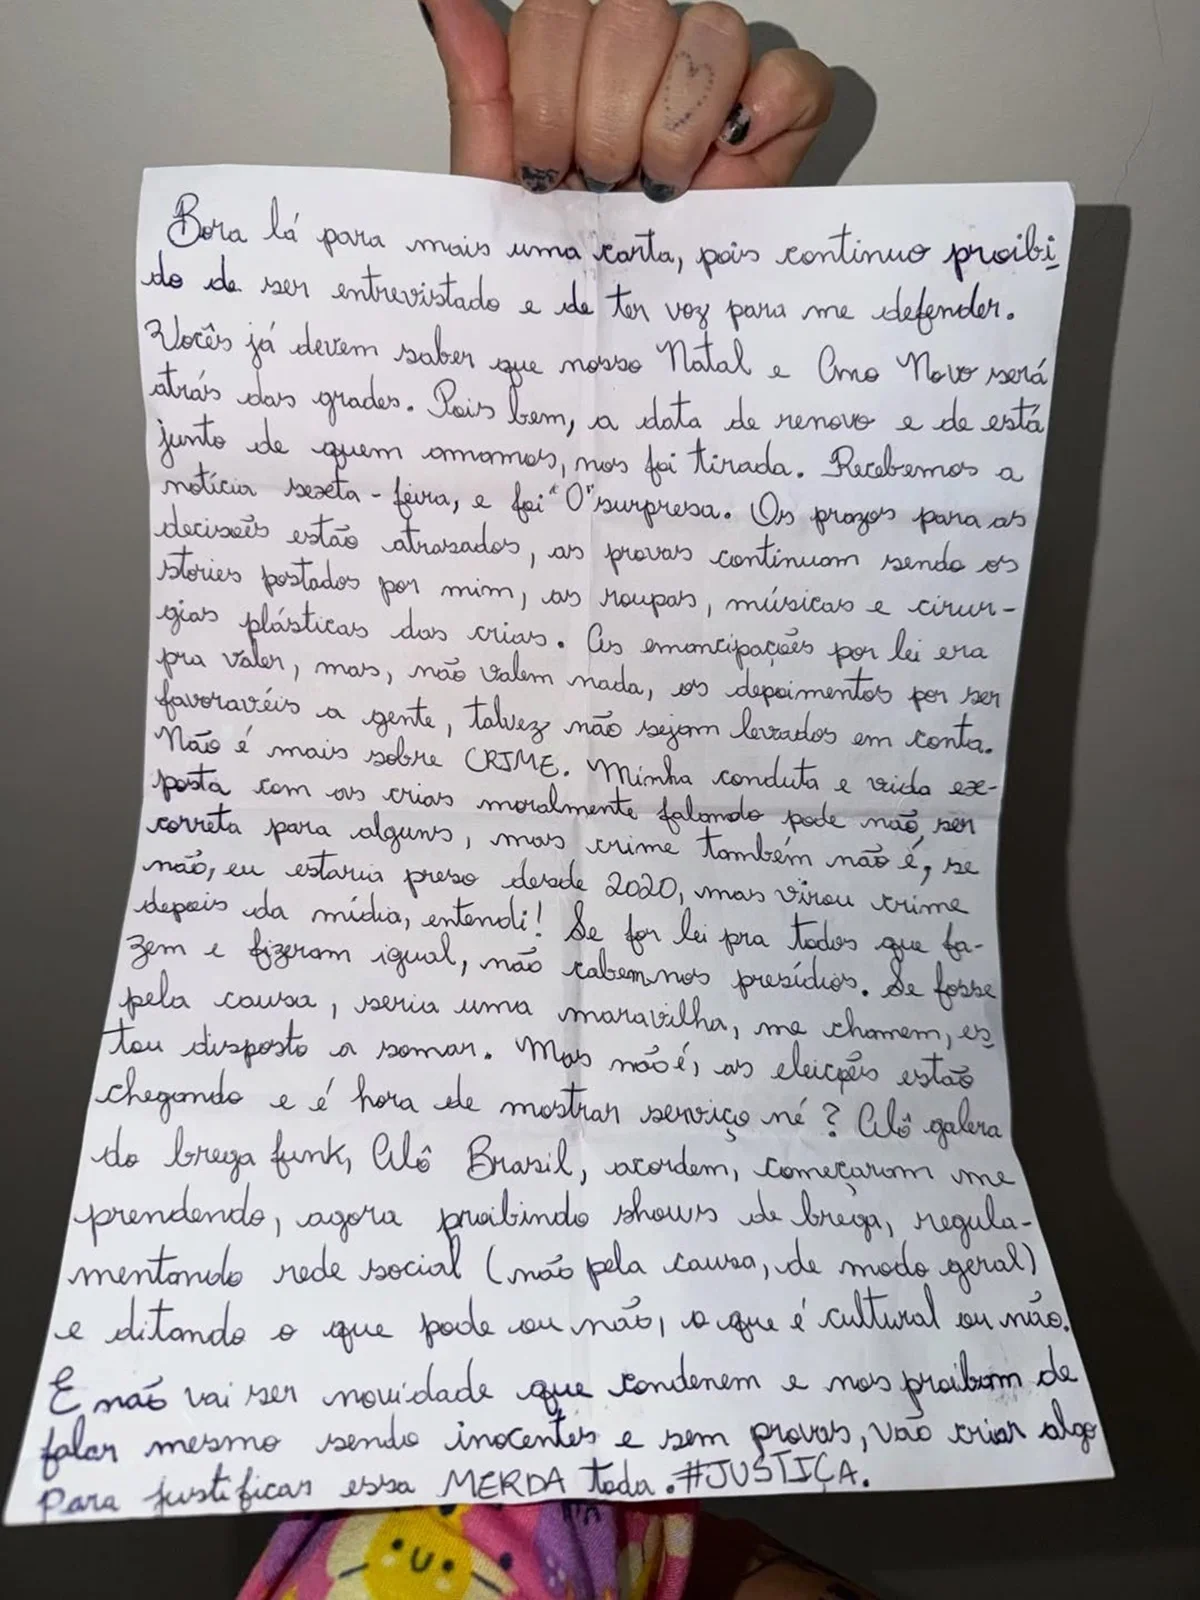 Bora lá para mais uma carta, pois continuo proibi
do de ser entrevistado e de ter voz para me defender.
Vocês já devem saber que nosso Natal e Ano Novo será
atrás das grades. Pois bem, a data de renovo e de está
junto de quem amamos, nos foi tirada. Recebemos a
notícia sexta-feira, e foi "O" surpresa. Os prazos para as
decisões estão atrasados, as provas continuam sendo os
stories postados por mim, as roupas, músicas e cirur-
gias plásticas das crias. As emancipações por lei era
pra valer, mas, não valem nada, os depoimentos por ser
favoravéis a gente, talvez não sejam levados em conta.
Não é mais sobre CRIME. Minha conduta e vida ex-
posta com as crias moralmente falando pode não ser
correta para alguns, mas crime também não é, se
não, eu estaria preso desde 2020, mas virou crime
depois da mídia, entendi! Se for lei pra todos que fa-
zem e fizeram igual, não cabem nos presídios. Se fosse
pela causa, seria uma maravilha, me chamem, es
tou disposto a somar. Mas não é, as eleições estão
chegando e é hora de mostrar serviço né? Alô galera
do brega funk, Alô Brasil, acordem, começaram me
prendendo, agora proibindo shows de brega, regula-
mentando rede social (não pela causa, de modo geral)
e ditando o que pode ou não, o que é cultural ou não.
E não vai ser novidade que condenem e nos proibam de
falar mesmo sendo inocentes e sem provas, vão criar algo
para justificar essa MERDA toda. #JUSTIÇA.